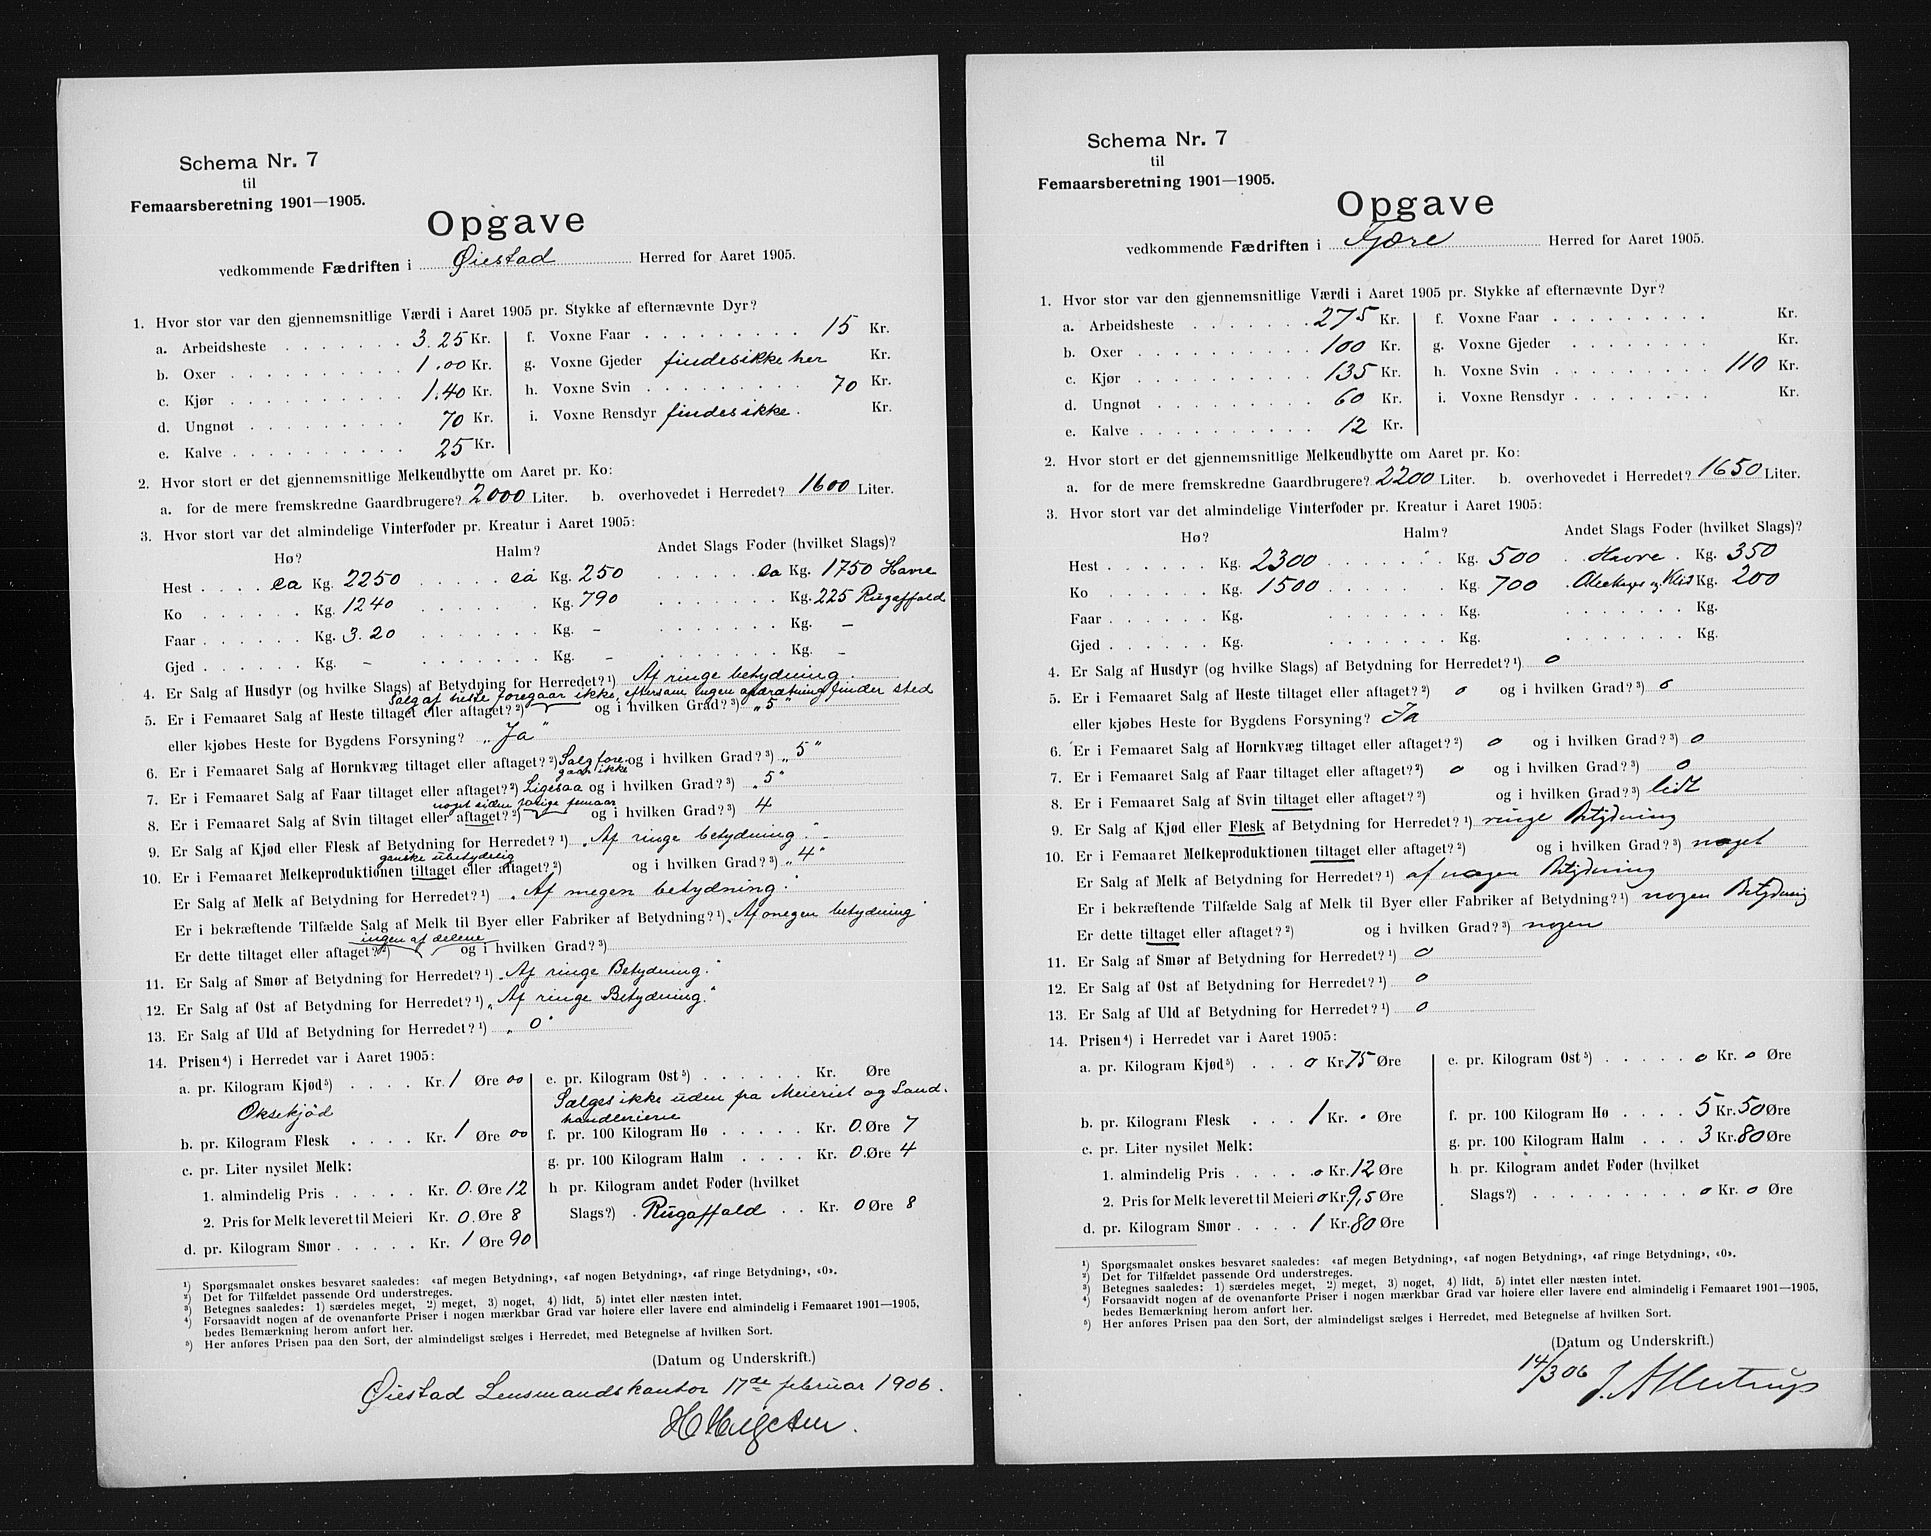 Schema Nr. 7
til
Femaarsberetning 1901—1905.
Opgave
vedkommende Fædriften i Øiestad Herred for Aaret 1905.
1. Hvor stor var den gjennemsnitlige Værdi i Aaret 1905 pr. Stykke af efternævnte Dyr?
a. Arbeidsheste . . . . . . . 3.25 Kr.
b. Oxer . . . . . . . . . . 1.00 Kr.
c. Kjør . . . . . . . . . . 1.40 Kr.
d. Ungnøt . . . . . . . . . 70 Kr.
e. Kalve . . . . . . . . . . 25 Kr.
f. Voxne Faar . . . . . . . 15 Kr.
g. Voxne Gjeder findes ikke her Kr.
h. Voxne Svin . . . . . . . 70 Kr.
i. Voxne Rensdyr findes ikke . Kr.
2. Hvor stort er det gjennemsnitlige Melkeudbytte om Aaret pr. Ko:
a. for de mere fremskredne Gaardbrugere? 2000 Liter. b. overhovedet i Herredet? 1600 Liter.
3. Hvor stort var det almindelige Vinterfoder pr. Kreatur i Aaret 1905:
Hø? Halm? Andet Slags Foder (hvilket Slags)?
Hest . . . . ca Kg. 2250 . . . . . ca Kg. 250 . . . . . . ca Kg. 1750 Havre
Ko . . . . . . Kg. 1240 . . . . . . . Kg. 790 . . . . . . . Kg. 225 Rugaffald
Faar . . . . . . Kg. 3.20 . . . . . . . Kg. – . . . . . . . Kg. –
Gjed . . . . . . Kg. – . . . . . . . Kg. – . . . . . . . Kg. –
4. Er Salg af Husdyr (og hvilke Slags) af Betydning for Herredet?¹) Af ringe betydning.
Salg af heste foregaar ikke, eftersom ingen opdrætning finder sted
5. Er i Femaaret Salg af Heste tiltaget eller aftaget?²) og i hvilken Grad?³) „5"
eller kjøbes Heste for Bygdens Forsyning? „Ja"
6. Er i Femaaret Salg af Hornkvæg tiltaget eller aftaget?²) Salg fore- og i hvilken Grad?³) „5"
gaar ikke
7. Er i Femaaret Salg af Faar tiltaget eller aftaget?²) Ligesaa og i hvilken Grad?³) „5"
noget siden forrige femaar
8. Er i Femaaret Salg af Svin tiltaget eller aftaget?²) og i hvilken Grad?³) 4
9. Er Salg af Kjød eller Flesk af Betydning for Herredet?¹) „Af ringe betydning."
ganske ubetydelig
10. Er i Femaaret Melkeproduktionen tiltaget eller aftaget?²) og i hvilken Grad?³) „4"
Er Salg af Melk af Betydning for Herredet?¹) „Af megen betydning."
Er i bekræftende Tilfælde Salg af Melk til Byer eller Fabriker af Betydning?¹) „Af megen betydning"
ingen af delene
Er dette tiltaget eller aftaget?²) og i hvilken Grad?³)
11. Er Salg af Smør af Betydning for Herredet?¹) „Af ringe Betydning."
12. Er Salg af Ost af Betydning for Herredet?¹) „Af ringe Betydning."
13. Er Salg af Uld af Betydning for Herredet?¹) „0"
14. Prisen⁴) i Herredet var i Aaret 1905:
a. pr. Kilogram Kjød⁵) . . . . Kr. 1 Øre 00
Oksekjød
b. pr. Kilogram Flesk . . . . Kr. 1 Øre 00
c. pr. Liter nysilet Melk:
1. almindelig Pris . . . . . Kr. 0. Øre 12
2. Pris for Melk leveret til Meieri Kr. 0. Øre 8
d. pr. Kilogram Smør . . . . . Kr. 1 Øre 90
e. pr. Kilogram Ost⁵) . . . . . . Kr. Øre
Sælges ikke uden fra Meieriet og Land-
handlerierne
f. pr. 100 Kilogram Hø . . . . . Kr. 0. Øre 7
g. pr. 100 Kilogram Halm . . . . Kr. 0. Øre 4
h pr. Kilogram andet Foder (hvilket
Slags?) . Rugaffald . . Kr. 0 Øre 8
¹) Spørgsmaalet ønskes besvaret saaledes: «af megen Betydning», «af nogen Betydning», «af ringe Betydning», «0».
²) Det for Tilfældet passende Ord understreges.
³) Betegnes saaledes: 1) særdeles meget, 2) meget, 3) noget, 4) lidt, 5) intet eller næsten intet.
⁴) Forsaavidt nogen af de ovenanførte Priser i nogen mærkbar Grad var høiere eller lavere end almindelig i Femaaret 1901—1905,
bedes Bemærkning herom anført her.
⁵) Her anføres Prisen paa den Sort, der almindeligst sælges i Herredet, med Betegnelse af hvilken Sort.
(Datum og Underskrift.)
Øiestad Lensmandskontor 17de februar 1906.
Schema Nr. 7
til
Femaarsberetning 1901—1905.
Opgave
vedkommende Fædriften i Fjære Herred for Aaret 1905.
1. Hvor stor var den gjennemsnitlige Værdi i Aaret 1905 pr. Stykke af efternævnte Dyr?
a. Arbeidsheste . . . . . . . 275 Kr.
b. Oxer . . . . . . . . . . 100 Kr.
c. Kjør . . . . . . . . . . 135 Kr.
d. Ungnøt . . . . . . . . . 60 Kr.
e. Kalve . . . . . . . . . . 12 Kr.
f. Voxne Faar . . . . . . . . . Kr.
g. Voxne Gjeder . . . . . . . . Kr.
h. Voxne Svin . . . . . . . . 110 Kr.
i. Voxne Rensdyr . . . . . . . Kr.
2. Hvor stort er det gjennemsnitlige Melkeudbytte om Aaret pr. Ko:
a. for de mere fremskredne Gaardbrugere? 2200 Liter. b. overhovedet i Herredet? 1650 Liter.
3. Hvor stort var det almindelige Vinterfoder pr. Kreatur i Aaret 1905:
Hø? Halm? Andet Slags Foder (hvilket Slags)?
Hest . . . . . . . Kg. 2300 . . . . . . . Kg. 500 . Havre . Kg. 350
Ko . . . . . . . Kg. 1500 . . . . . . . Kg. 700 og Klid Kg. 200
Faar . . . . . . . Kg. . . . . . . . Kg. . . . . . . . Kg.
Gjed . . . . . . . Kg. . . . . . . . Kg. . . . . . . . Kg.
4. Er Salg af Husdyr (og hvilke Slags) af Betydning for Herredet?¹) 0
5. Er i Femaaret Salg af Heste tiltaget eller aftaget?²) 0 og i hvilken Grad?³) 0
eller kjøbes Heste for Bygdens Forsyning? Ja
6. Er i Femaaret Salg af Hornkvæg tiltaget eller aftaget?²) 0 og i hvilken Grad?³) 0
7. Er i Femaaret Salg af Faar tiltaget eller aftaget?²) 0 og i hvilken Grad?³) 0
8. Er i Femaaret Salg af Svin tiltaget eller aftaget?²) og i hvilken Grad?³) lidt
9. Er Salg af Kjød eller Flesk af Betydning for Herredet?¹) ringe Betydning
10. Er i Femaaret Melkeproduktionen tiltaget eller aftaget?²) og i hvilken Grad?³) noget
Er Salg af Melk af Betydning for Herredet?¹) af nogen Betydning
Er i bekræftende Tilfælde Salg af Melk til Byer eller Fabriker af Betydning?¹) nogen Betydning
Er dette tiltaget eller aftaget?²) og i hvilken Grad?³) nogen
11. Er Salg af Smør af Betydning for Herredet?¹) 0
12. Er Salg af Ost af Betydning for Herredet?¹) 0
13. Er Salg af Uld af Betydning for Herredet?¹) 0
14. Prisen⁴) i Herredet var i Aaret 1905:
a. pr. Kilogram Kjød⁵) . . . . 0 Kr. 75 Øre
b. pr. Kilogram Flesk . . . . 1 Kr. . Øre
c. pr. Liter nysilet Melk:
1. almindelig Pris . . . . 0 Kr. 12 Øre
2. Pris for Melk leveret til Meieri 0 Kr. 9,5 Øre
d. pr. Kilogram Smør . . . . 1 Kr. 80 Øre
e. pr. Kilogram Ost⁵) . . . . . 0 Kr. 0 Øre
f. pr. 100 Kilogram Hø . . . . 5 Kr. 50 Øre
g. pr. 100 Kilogram Halm . . . 3 Kr. 80 Øre
h pr. Kilogram andet Foder (hvilket
Slags?) . . . . . . . . . . 0 Kr. 0 Øre
¹) Spørgsmaalet ønskes besvaret saaledes: «af megen Betydning», «af nogen Betydning», «af ringe Betydning», «0».
²) Det for Tilfældet passende Ord understreges.
³) Betegnes saaledes: 1) særdeles meget, 2) meget, 3) noget, 4) lidt, 5) intet eller næsten intet.
⁴) Forsaavidt nogen af de ovenanførte Priser i nogen mærkbar Grad var høiere eller lavere end almindelig i Femaaret 1901—1905,
bedes Bemærkning herom anført her.
⁵) Her anføres Prisen paa den Sort, der almindeligst sælges i Herredet, med Betegnelse af hvilken Sort.
(Datum og Underskrift.)
14/3 06